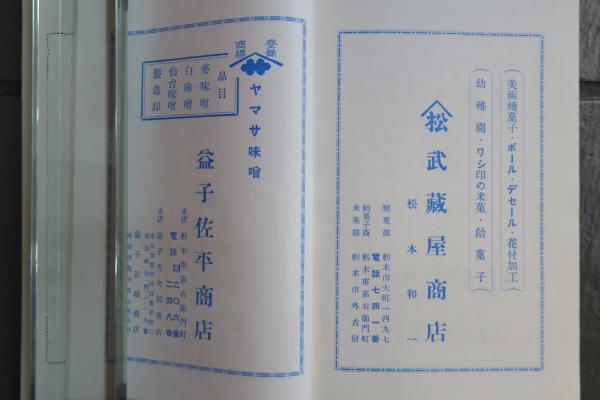 美術焼菓子・ボール・デセール・花付加工
幼稚園・ワシ印の米菓・飴菓子
松武蔵屋商店
松本和一
製菓部 栃木市大町一四九七
電話七四一番
飴菓子商 栃木市嘉右衛門町
米菓部 栃木市外吉宿
登録
商標
ヤマサ味噌
品目
麦味噌
白味噌
仙台味噌
製造卸
益子佐平商店
本店 栃木市嘉右衛門町
電話 二〇六番
二四八番
支店 益子芳次郎商店